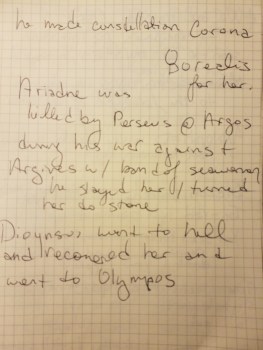 he made constellation Corona
Borealis
for her.
Ariadne was
killed by Perseus @ Argos
during his war against
Argives w/ band of seawomen
he slayed her / turned
her to stone
Dioynsus went to hell
and recovered her and
went to Olympos